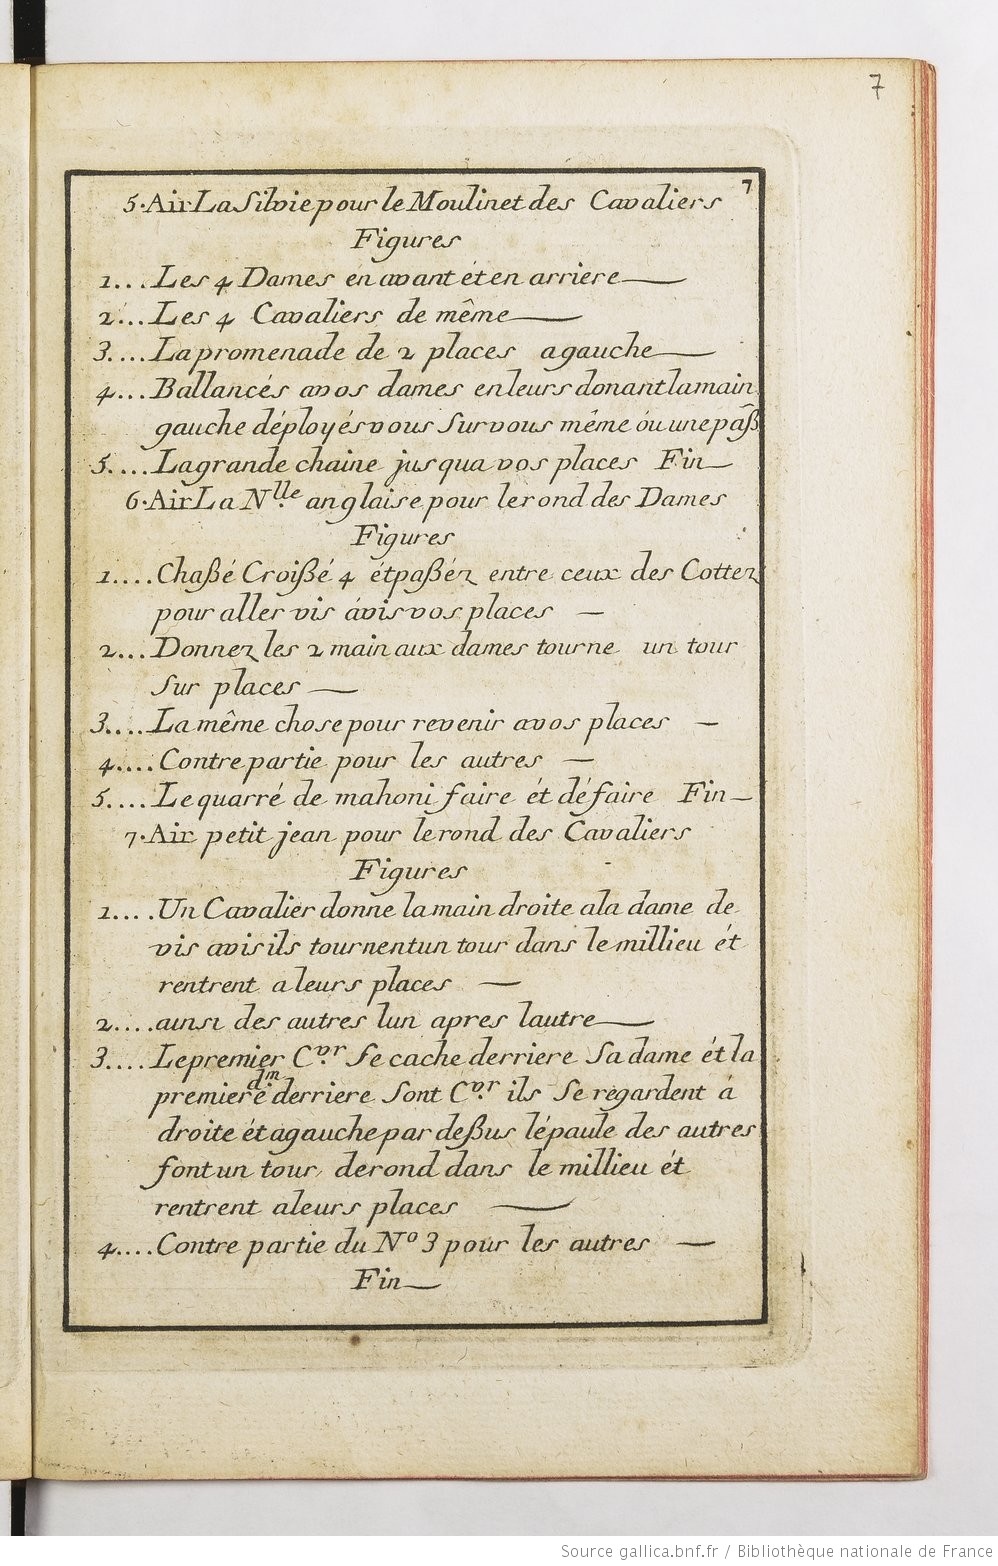 7
7
5. Air La Silvie pour le Moulinet des Cavaliers
Figures
1... Les 4 Dames en avant ét en arriere
2... Les 4 Cavaliers de même
3.... La promenade de 2 places a gauche
4... Ballancés a vos dames en leurs donant la main
gauche déployés vous sur vous même óu une paß
5.... La grande chaine jusqua vos places Fin
6. Air La Nlle anglaise pour le rond des Dames
Figures
1.... Chaßé Croißé 4 ét paßéz entre ceux des Cottez
pour aller vis ávis vos places
2... Donnez les 2 main aux dames tourne un tour
sur places
3.... La même chose pour revenir a vos places
4.... Contre partie pour les autres
5.... Le quarré de mahoni faire ét défaire Fin
7. Air petit jean pour le rond des Cavaliers
Figures
1.... Un Cavalier donne la main droite a la dame de
vis avis ils tournent un tour dans le millieu ét
rentrent a leurs places
2.... ainsi des autres lun apres lautre
3.... Le premier Cvr se cache derriere sa dame ét la
premiere dm derriere sont Cvr ils se regardent á
droite ét a gauche par deßus lépaule des autres
font un tour de rond dans le millieu ét
rentrent a leurs places
4.... Contre partie du No 3 pour les autres
Fin
Source gallica.bnf.fr / Bibliothèque nationale de France